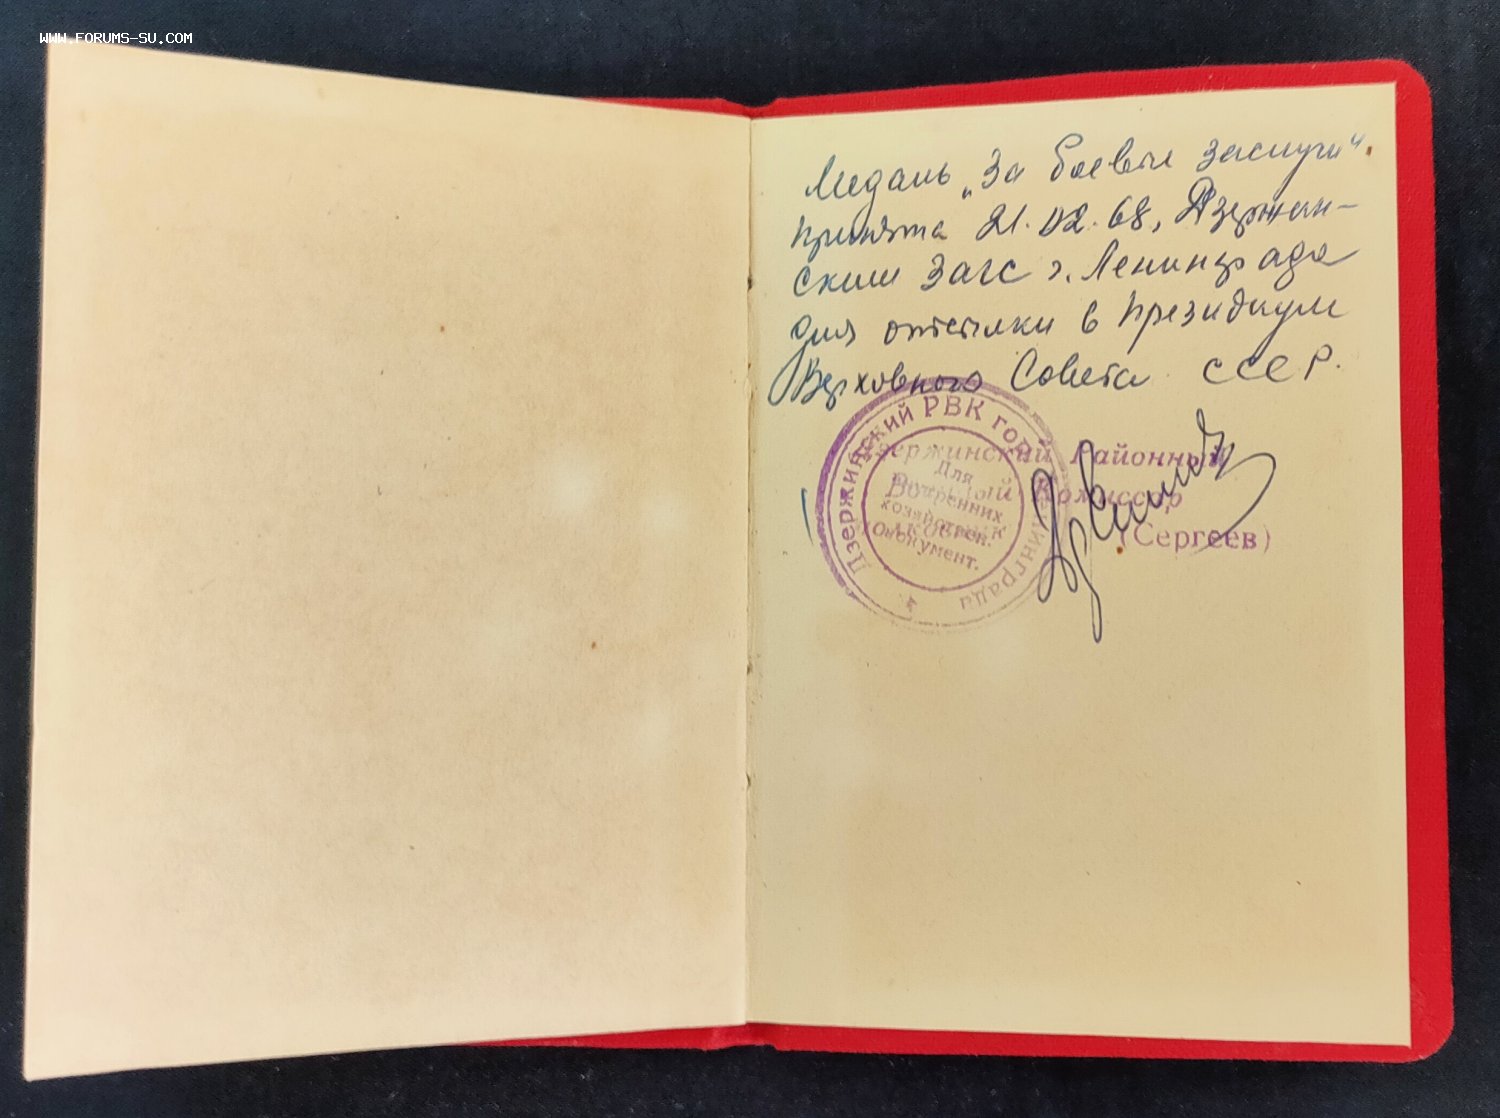 WWW.FORUMS-SU.COM
Медаль „За боевые заслуги"
принята 21.02.68, Дзержин-
ским Загс г. Ленинграда
для отсылки в Президиум
Верховного Совета СССР.
Дзержинский РВК гор. Ленинграда
Для
внутренних
хозяйствен.
документ.
Дзержинский Районный
Военный Комиссар
полковник
(Сергеев)